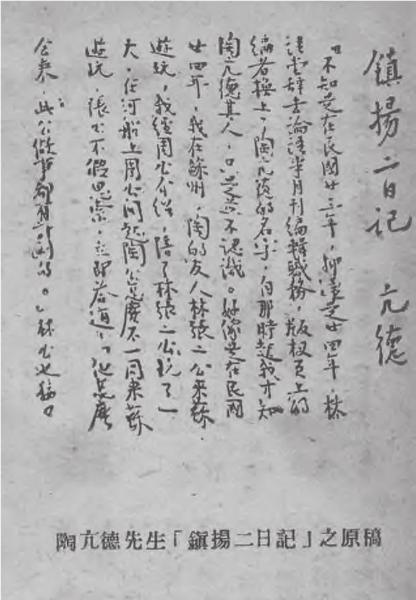 鎮揚二日記　亢德
“不知是在民國廿三年，抑還是廿四年，林
語堂辭去論語半月刊編輯職務，版权頁上的
編者換上了陶亢德的名字，自那時起我才知
陶亢德其人，口是并不認識。好像是在民國
廿四年，我在蘇州，陶的友人林張二公來蘇
遊玩，我經周公介紹，陪了林張二公玩了一
天，在河船上周公問起陶公怎麼不一同來蘇
遊玩，張公不假思索，立即答道，“他怎麼
会來，此公做事都有計劃的。”林公也接口
陶亢德先生「鎮揚二日記」之原稿